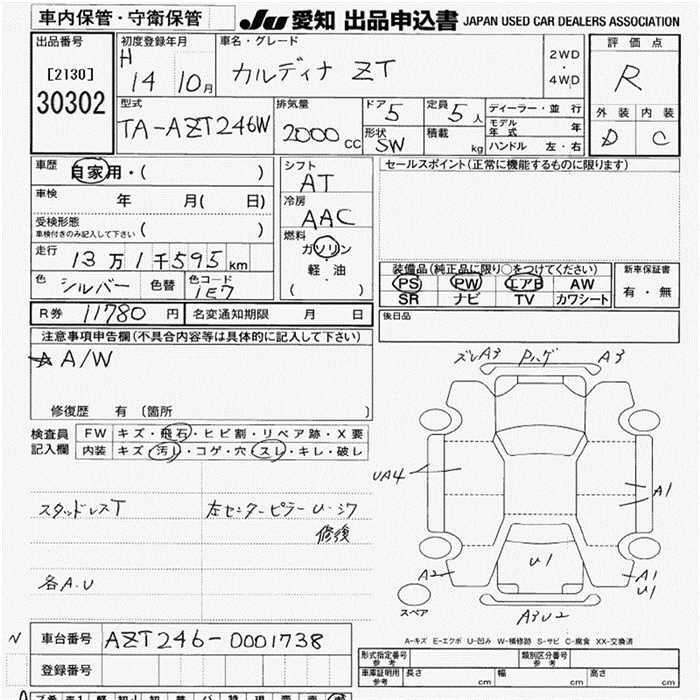 車内保管・守衛保管
JU 愛知 出品申込書 JAPAN USED CAR DEALERS ASSOCIATION
出品番号
[2130]
30302
初度登録年月
H 14 10月
車名・グレード
カルディナ ZT
2WD
・
4WD
評価点
R
外装 内装
D C
型式
TA-AZT246W
排気量
2000 CC
ドア 5
形状 SW
定員 5 人
積載 kg
ディーラー・並行
モデル年式 年
ハンドル 左・右
車歴 自家用・( )
車検 年 月( 日)
受検形態
車検付きのみ記入して下さい ( )
走行 13万1千595km
色 シルバー 色替 色コード 1E7
シフト
AT
冷房
AAC
燃料
ガソリン
軽油
( )
セールスポイント(正常に機能するものに限ります)
装備品(純正品に限り○をつけてください)
PS PW エアB AW
SR ナビ TV カワシート
新車保証書
有・無
R券 11780 円 名変通知期限 月 日
後日品
注意事項申告欄(不具合内容等は具体的に記入して下さい)
A/W
修復歴 有 〔箇所 〕
検査員記入欄
FW キズ・飛石・ヒビ割・リペア跡・X要
内装 キズ・汚れ・コゲ・穴・スレ・キレ・破レ
スタッドレスT
左センターピラーU・シワ
修後
各A.U
ズレA3 Pハゲ A3
UA4
A1
U1
A2
A1
U1
A3U2
スペア
A-キズ E-エクボ U-凹み W-補修跡 S-サビ C-腐食 XX-交換済
N
車台番号 AZT246-0001738
登録番号
形式指定番号 参考
類別区分番号 参考
車庫証明用 参考 長さ cm 幅 cm 高さ cm